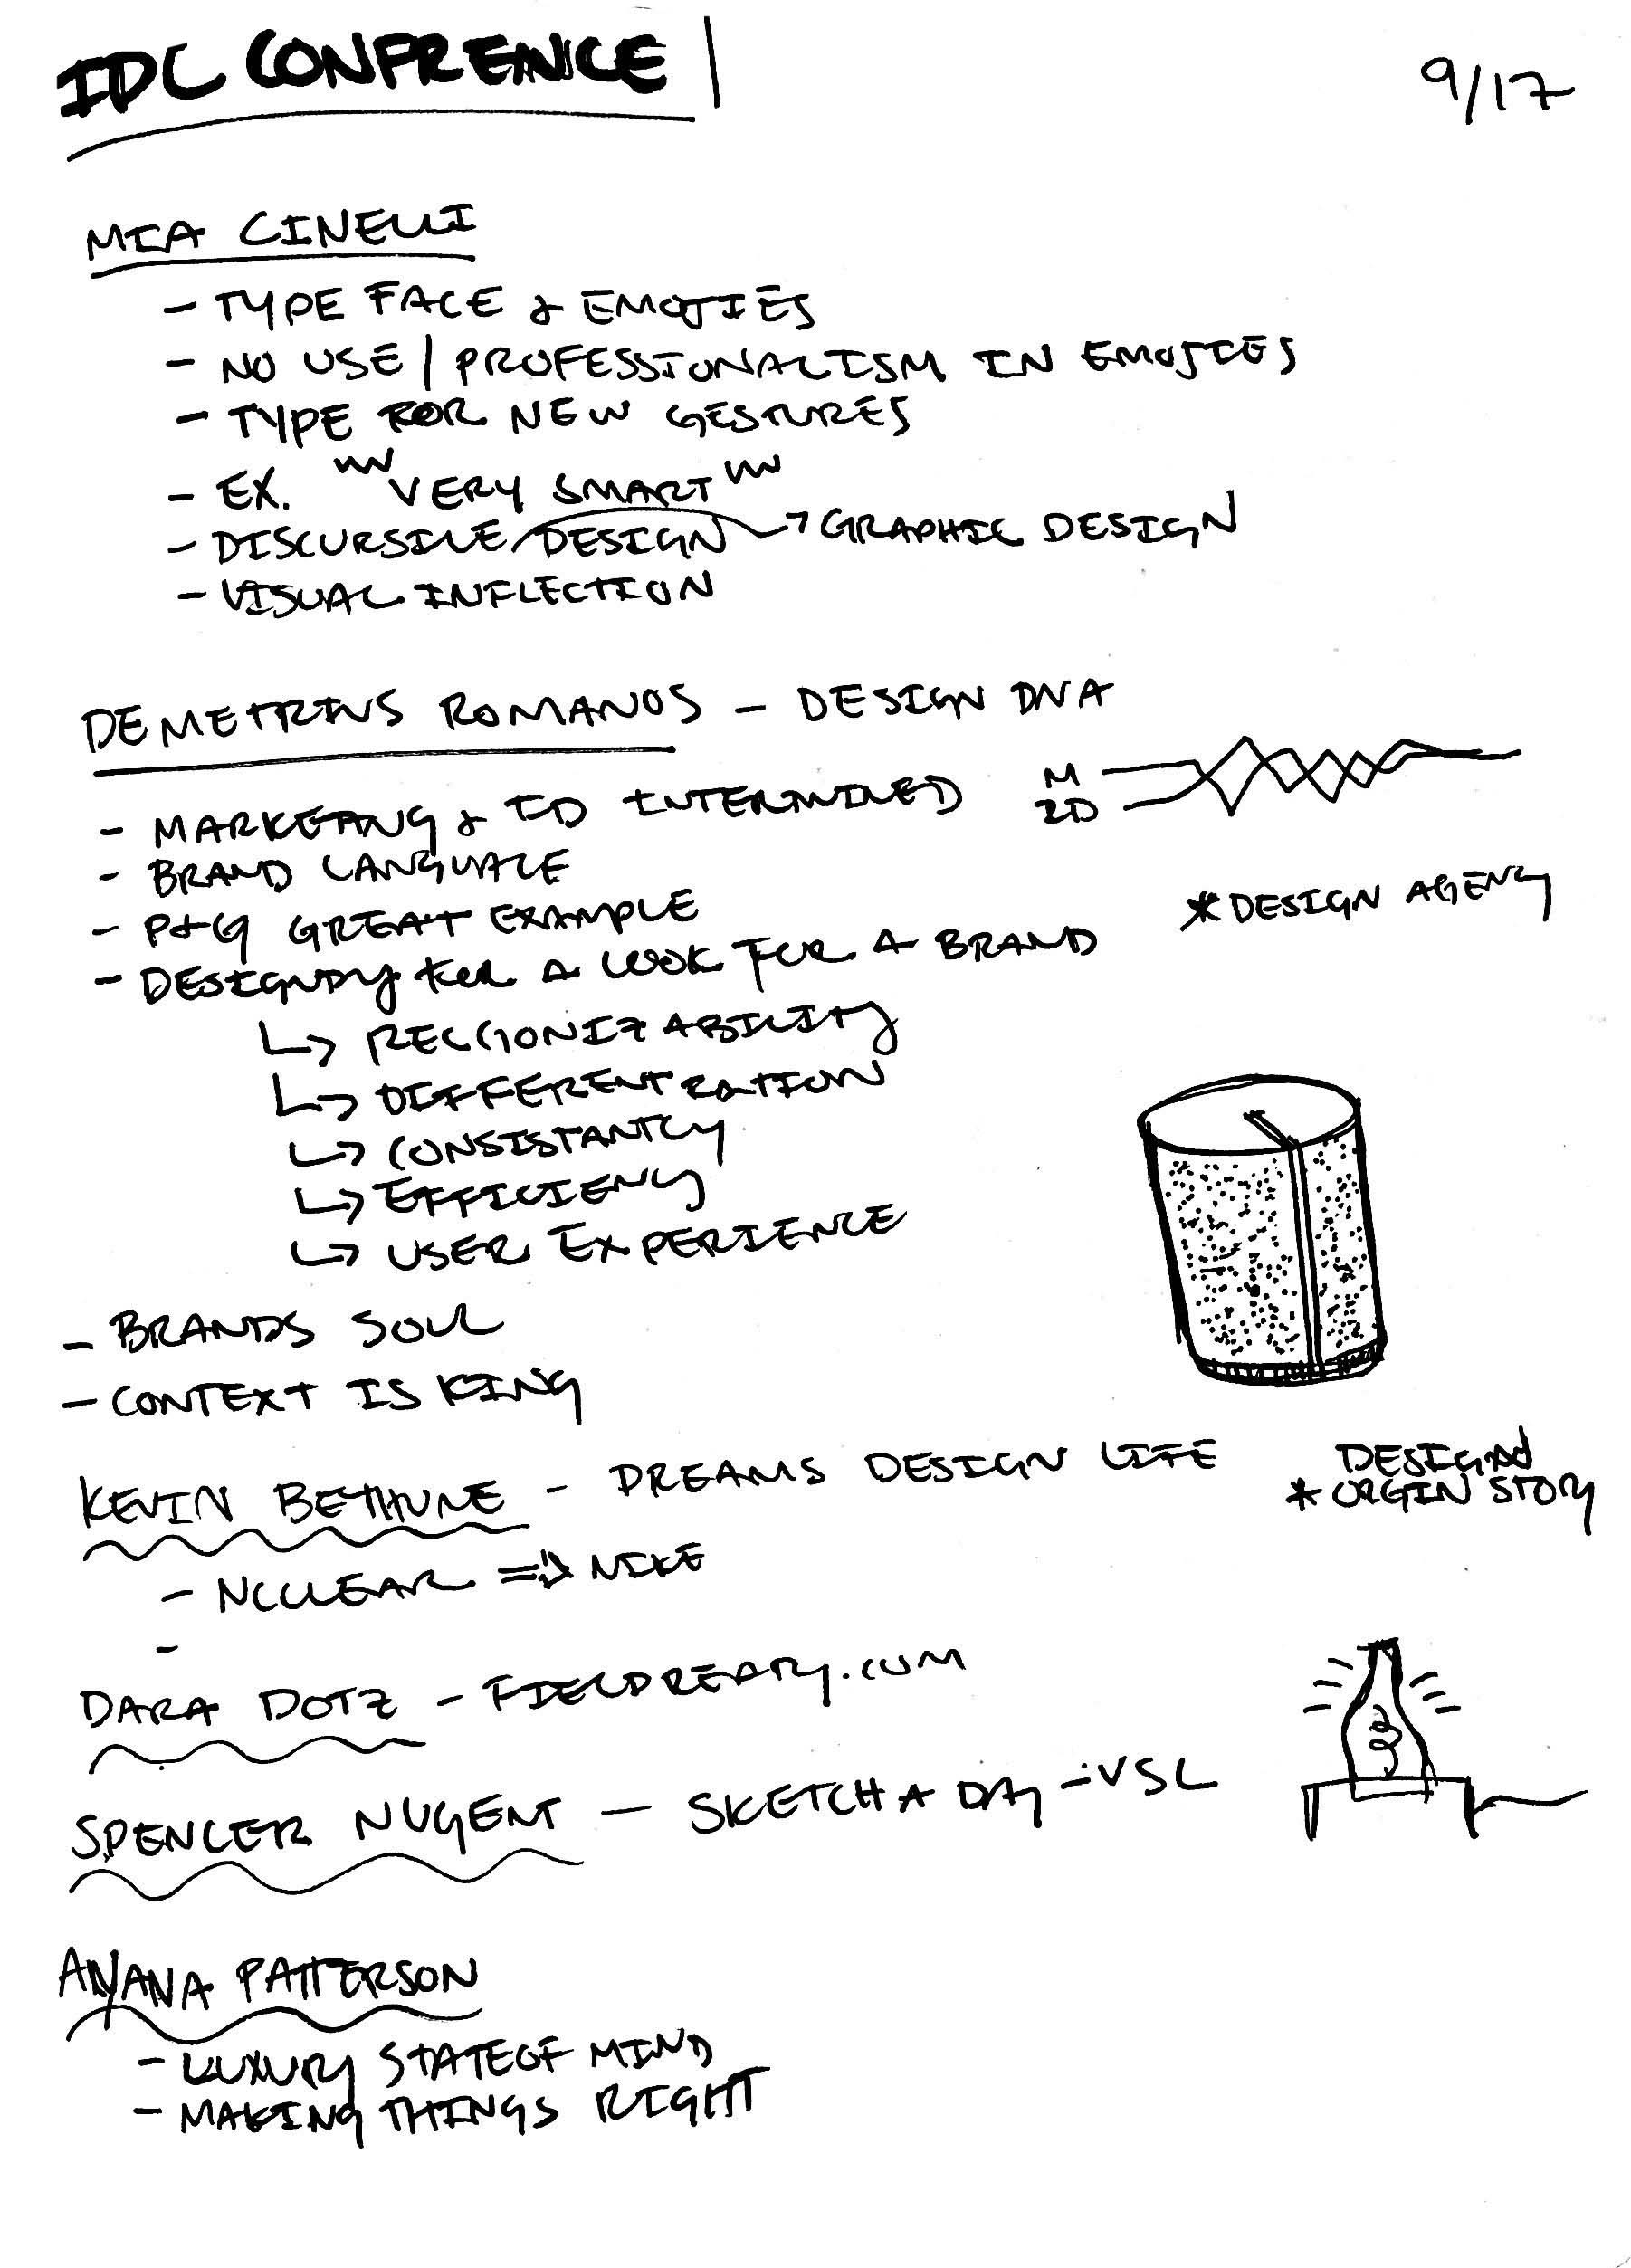 IDC CONFRENCE | 9/17
MIA CINELLI
- TYPE FACE & EMOJIES
- NO USE / PROFESSIONALISM IN EMOJIES
- TYPE FOR NEW GESTURES
- EX. VERY SMART
- DISCURSIVE DESIGN → GRAPHIC DESIGN
- VISUAL INFLECTION
DEMETRIUS ROMANOS - DESIGN DNA
- MARKETING & ID INTERTWINED
M
ID
- BRAND LANGUAGE
- P&G GREAT EXAMPLE
* DESIGN AGENCY
- DESIGNING FOR A LOOK FOR A BRAND
↳ RECGIONIZABILITY
↳ DIFFERENTIATION
↳ CONSISTANTCY
↳ EFFICIENCY
↳ USER EXPERIENCE
- BRANDS SOUL
- CONTEXT IS KING
KEVIN BETHUNE - DREAMS DESIGN LIFE
* ORGIN STORY
- NCULEAR => NIKE
-
DARA DOTZ - FIELDREADY.COM
SPENCER NUGENT - SKETCH A DAY - VSL
AYANA PATTERSON
- LUXURY STATE OF MIND
- MAKING THINGS RIGHT